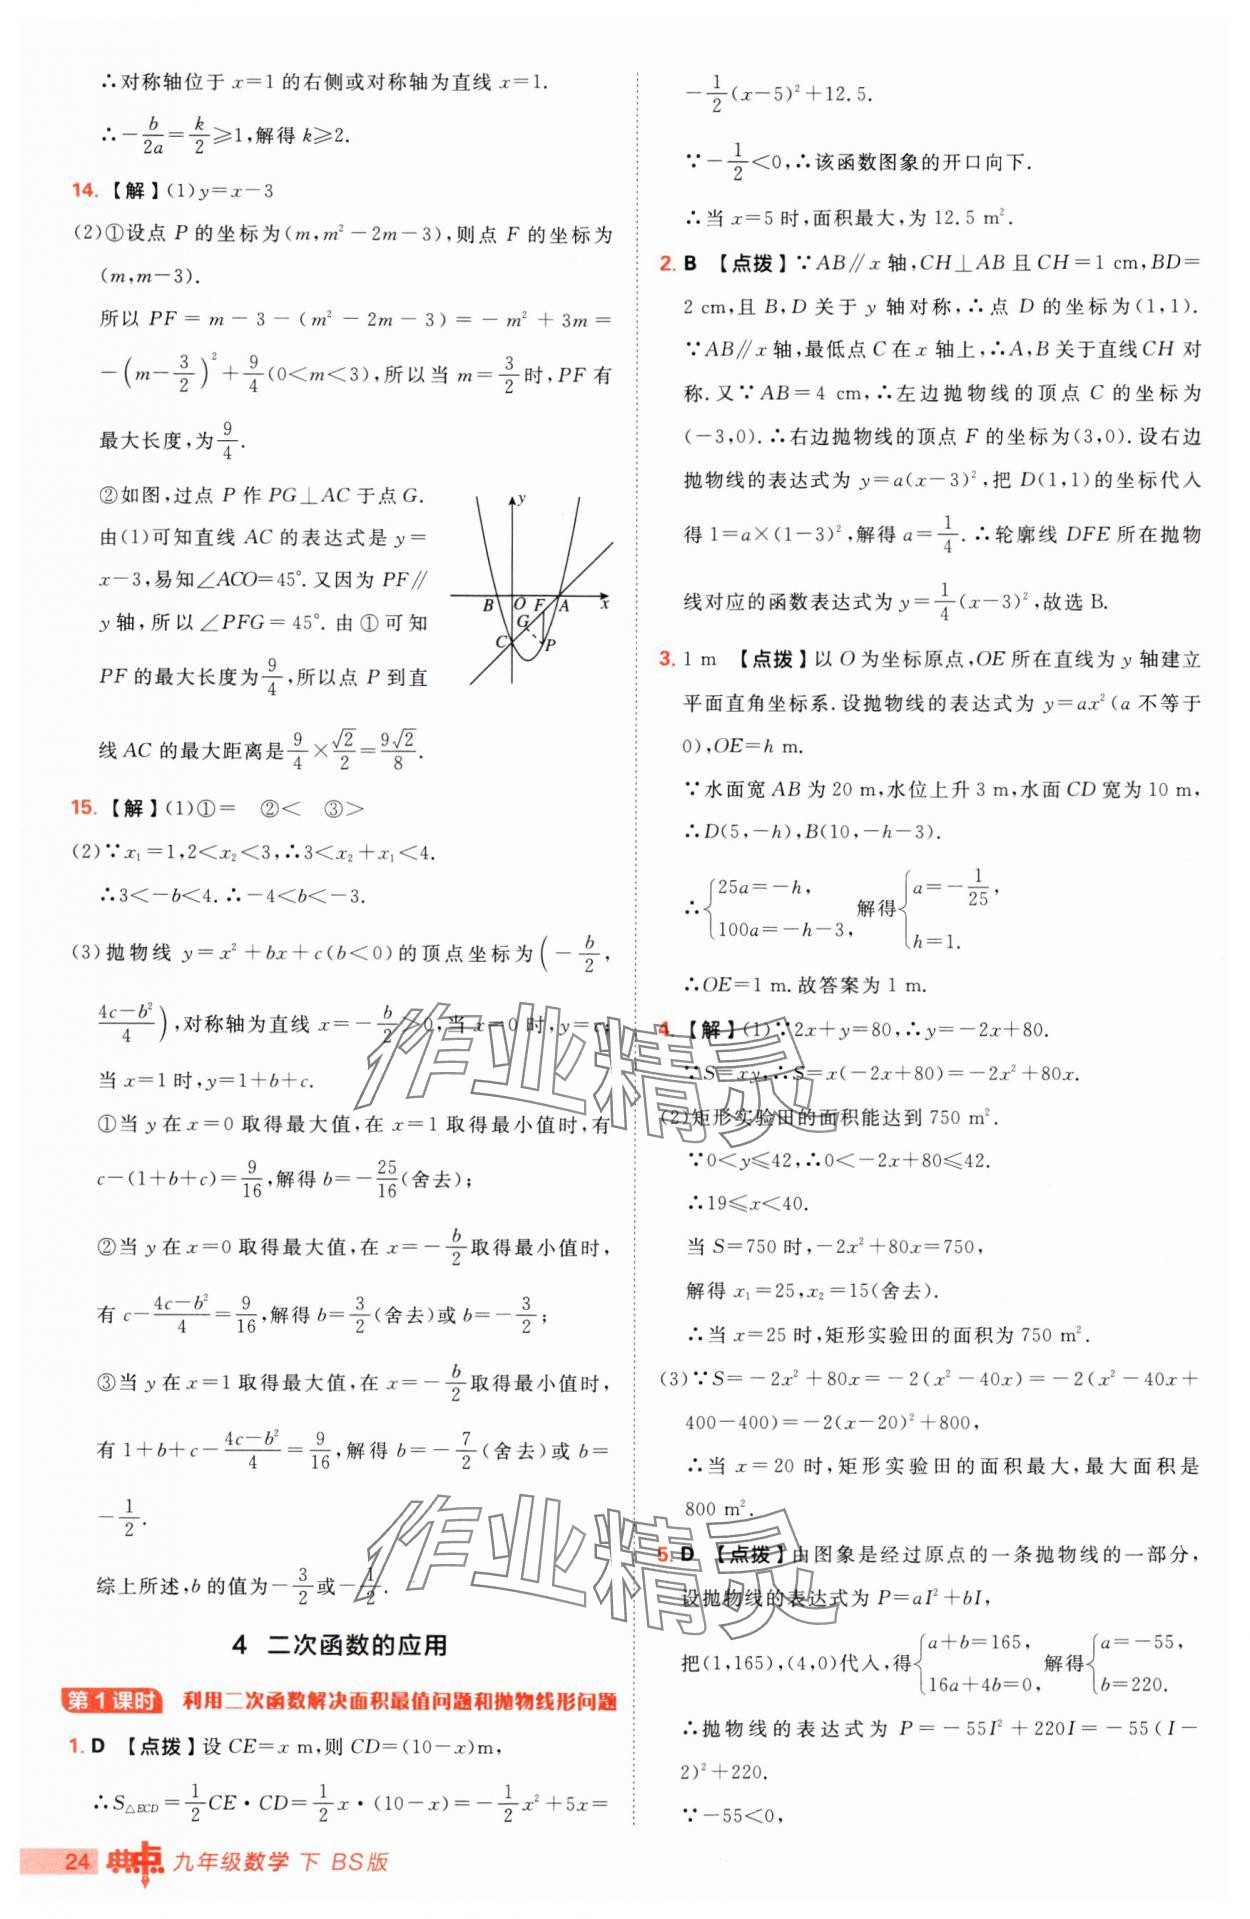 ∴对称轴位于 x=1 的右侧或对称轴为直线 x=1.
∴-b/2a=k/2≥1,解得 k≥2.
14.【解】(1)y=x-3
(2)①设点 P 的坐标为(m,m²-2m-3),则点 F 的坐标为
(m,m-3).
所以 PF=m-3-(m²-2m-3)=-m²+3m=
-(m-3/2)²+9/4(0<m<3),所以当 m=3/2时,PF 有
最大长度,为9/4.
②如图,过点 P 作 PG⊥AC 于点G.
由(1)可知直线 AC 的表达式是 y=
x-3,易知∠ACO=45°.又因为 PF∥
y轴,所以∠PFG=45°.由①可知
PF 的最大长度为9/4,所以点 P 到直
线 AC 的最大距离是9/4×√2/2=9√2/8.
y
B O F A x
G
C P
15.【解】(1)①= ②< ③>
(2)∵x₁=1,2<x₂<3,∴3<x₂+x₁<4.
∴3<-b<4.∴-4<b<-3.
(3)抛物线 y=x²+bx+c(b<0)的顶点坐标为(-b/2,
(4c-b²)/4),对称轴为直线 x=-b/2>0,当 x=0时,y=c;
当 x=1时,y=1+b+c.
①当 y在 x=0 取得最大值,在 x=1 取得最小值时,有
c-(1+b+c)=9/16,解得 b=-25/16(舍去);
②当 y 在 x=0 取得最大值,在 x=-b/2取得最小值时,
有 c-(4c-b²)/4=9/16,解得 b=3/2(舍去)或 b=-3/2;
③当 y 在 x=1 取得最大值,在 x=-b/2取得最小值时,
有 1+b+c-(4c-b²)/4=9/16,解得 b=-7/2(舍去)或 b=
-1/2.
综上所述,b 的值为-3/2或-1/2.
4 二次函数的应用
第1课时 利用二次函数解决面积最值问题和抛物线形问题
1. D 【点拨】设 CE=x m,则 CD=(10-x)m,
∴S△ECD=1/2CE·CD=1/2x·(10-x)=-1/2x²+5x=
-1/2(x-5)²+12.5.
∵-1/2<0,∴该函数图象的开口向下.
∴当 x=5时,面积最大,为 12.5 m².
2. B 【点拨】∵AB∥x 轴,CH⊥AB 且 CH=1 cm,BD=
2 cm,且 B,D 关于 y 轴对称,∴点 D 的坐标为(1,1).
∵AB∥x轴,最低点 C 在 x 轴上,∴A,B 关于直线CH 对
称.又∵AB=4 cm,∴左边抛物线的顶点 C 的坐标为
(-3,0).∴右边抛物线的顶点 F 的坐标为(3,0).设右边
抛物线的表达式为 y=a(x-3)²,把 D(1,1)的坐标代入
得 1=a×(1-3)²,解得 a=1/4.∴轮廓线 DFE 所在抛物
线对应的函数表达式为 y=1/4(x-3)²,故选 B.
3. 1 m 【点拨】以 O 为坐标原点,OE 所在直线为 y 轴建立
平面直角坐标系.设抛物线的表达式为 y=ax²(a 不等于
0),OE=h m.
∵水面宽 AB 为 20 m,水位上升 3 m,水面 CD 宽为 10 m,
∴D(5,-h),B(10,-h-3).
∴{25a=-h, 100a=-h-3, 解得{a=-1/25, h=1.
∴OE=1 m.故答案为 1 m.
4.【解】(1)∵2x+y=80,∴y=-2x+80.
∵S=xy,∴S=x(-2x+80)=-2x²+80x.
(2)矩形实验田的面积能达到 750 m².
∵0<y≤42,∴0<-2x+80≤42.
∴19≤x<40.
当 S=750 时,-2x²+80x=750,
解得 x₁=25,x₂=15(舍去).
∴当 x=25 时,矩形实验田的面积为 750 m².
(3)∵S=-2x²+80x=-2(x²-40x)=-2(x²-40x+
400-400)=-2(x-20)²+800,
∴当 x=20 时,矩形实验田的面积最大,最大面积是
800 m².
5. D 【点拨】由图象是经过原点的一条抛物线的一部分,
设抛物线的表达式为 P=aI²+bI,
把(1,165),(4,0)代入,得{a+b=165, 16a+4b=0, 解得{a=-55, b=220.
∴抛物线的表达式为 P=-55I²+220I=-55(I-
2)²+220.
∵-55<0,
作业精灵
作业精灵
24 典中点 九年级数学 下 BS版